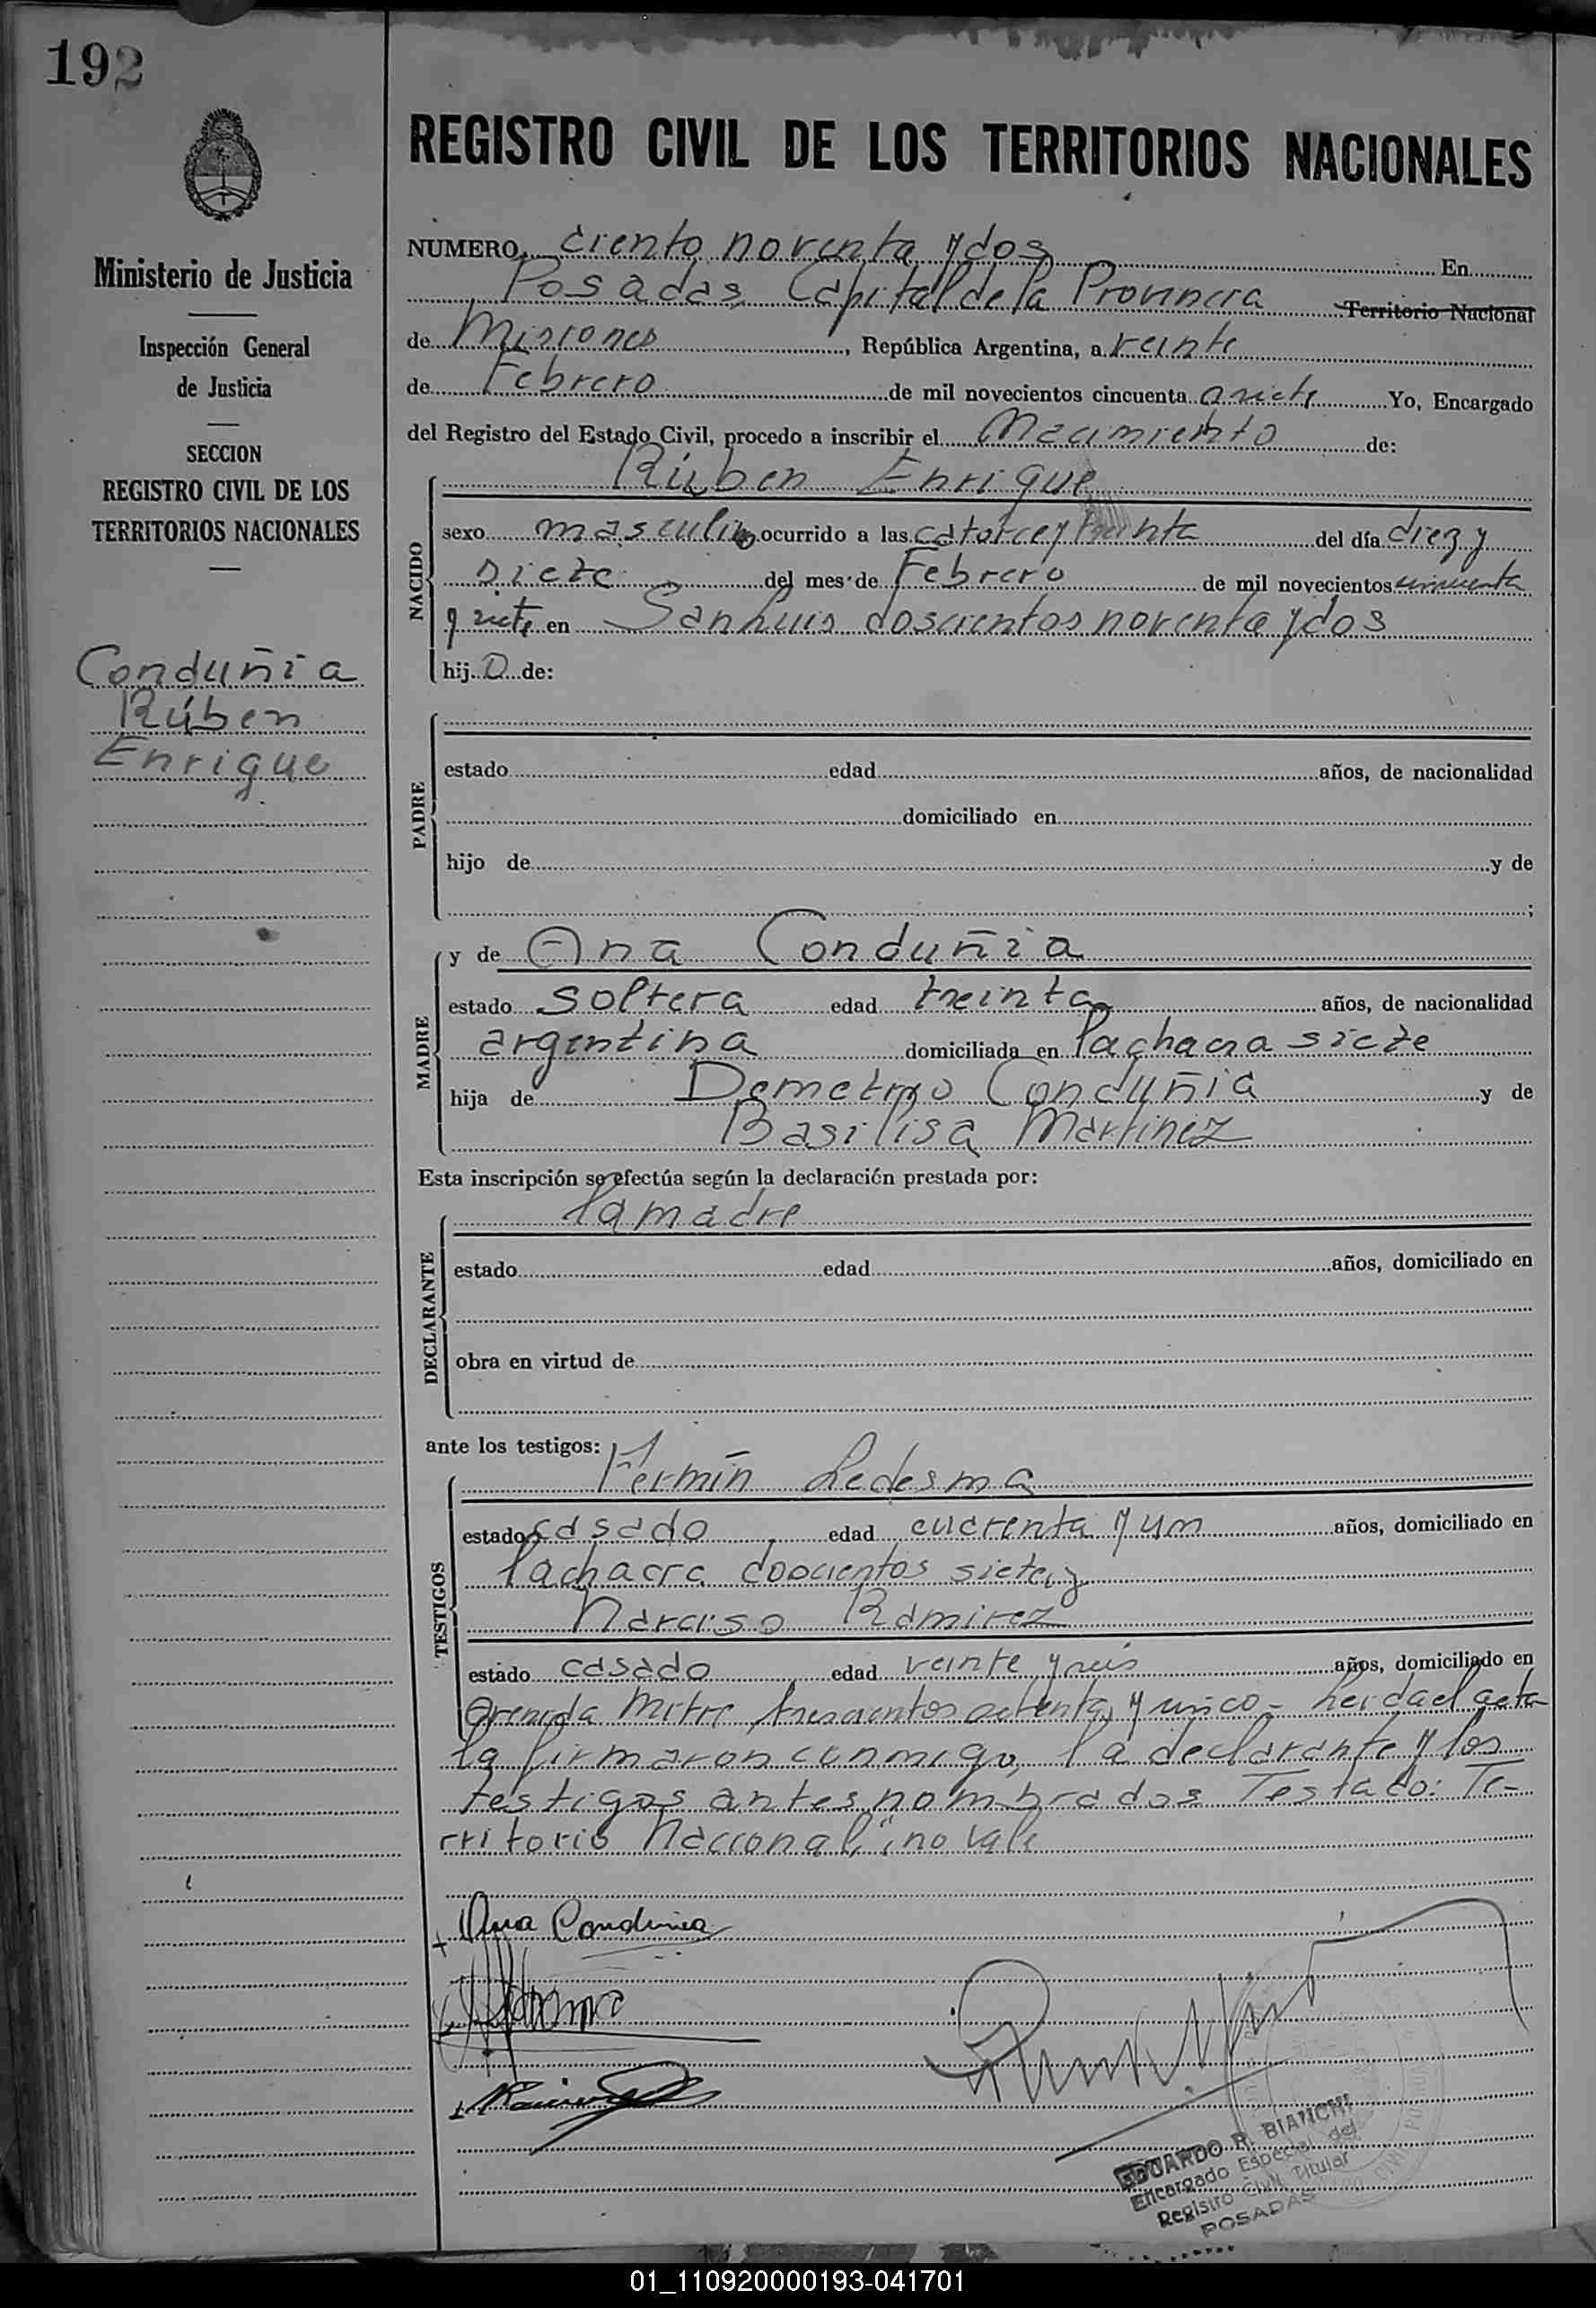 192
REGISTRO CIVIL DE LOS TERRITORIOS NACIONALES
Ministerio de Justicia
Inspección General
de Justicia
SECCION
REGISTRO CIVIL DE LOS
TERRITORIOS NACIONALES
Conduñia
Rúben
Enrique
NUMERO ciento noventa y dos En
Posadas, Capital de la Provincia Territorio Nacional
de Misiones, República Argentina, a veinte
de Febrero de mil novecientos cincuenta y siete Yo, Encargado
del Registro del Estado Civil, procedo a inscribir el Nacimiento de:
NACIDO
Rúben Enrique
sexo masculino ocurrido a las catorce y treinta del día diez y
siete del mes de Febrero de mil novecientos cincuenta
y siete en San Luis doscientos noventa y dos
hij o de:
PADRE
estado edad años, de nacionalidad
domiciliado en
hijo de y de
;
MADRE
y de Ana Conduñia
estado soltera edad treinta años, de nacionalidad
argentina domiciliada en la chacra siete
hija de Demetrio Conduñia y de
Basilisa Martinez
Esta inscripción se efectúa según la declaración prestada por:
DECLARANTE
la madre
estado edad años, domiciliado en
obra en virtud de
ante los testigos:
TESTIGOS
Fermín Ledesma
estado casado edad cuarenta y un años, domiciliado en
la chacra doscientos siete y
Narciso Ramirez
estado casado edad veinte y seis años, domiciliado en
avenida Mitre trescientos y cinco - Leida el acta
la firmaron conmigo, la declarante y los
testigos antes nombrados Testado: Te-
rritorio Nacional", no vale
Ana Condunia
Ramirez
EDUARDO R. BIANCHI
Encargado Especial del
Registro Civil Titular
POSADAS
01_110920000193-041701